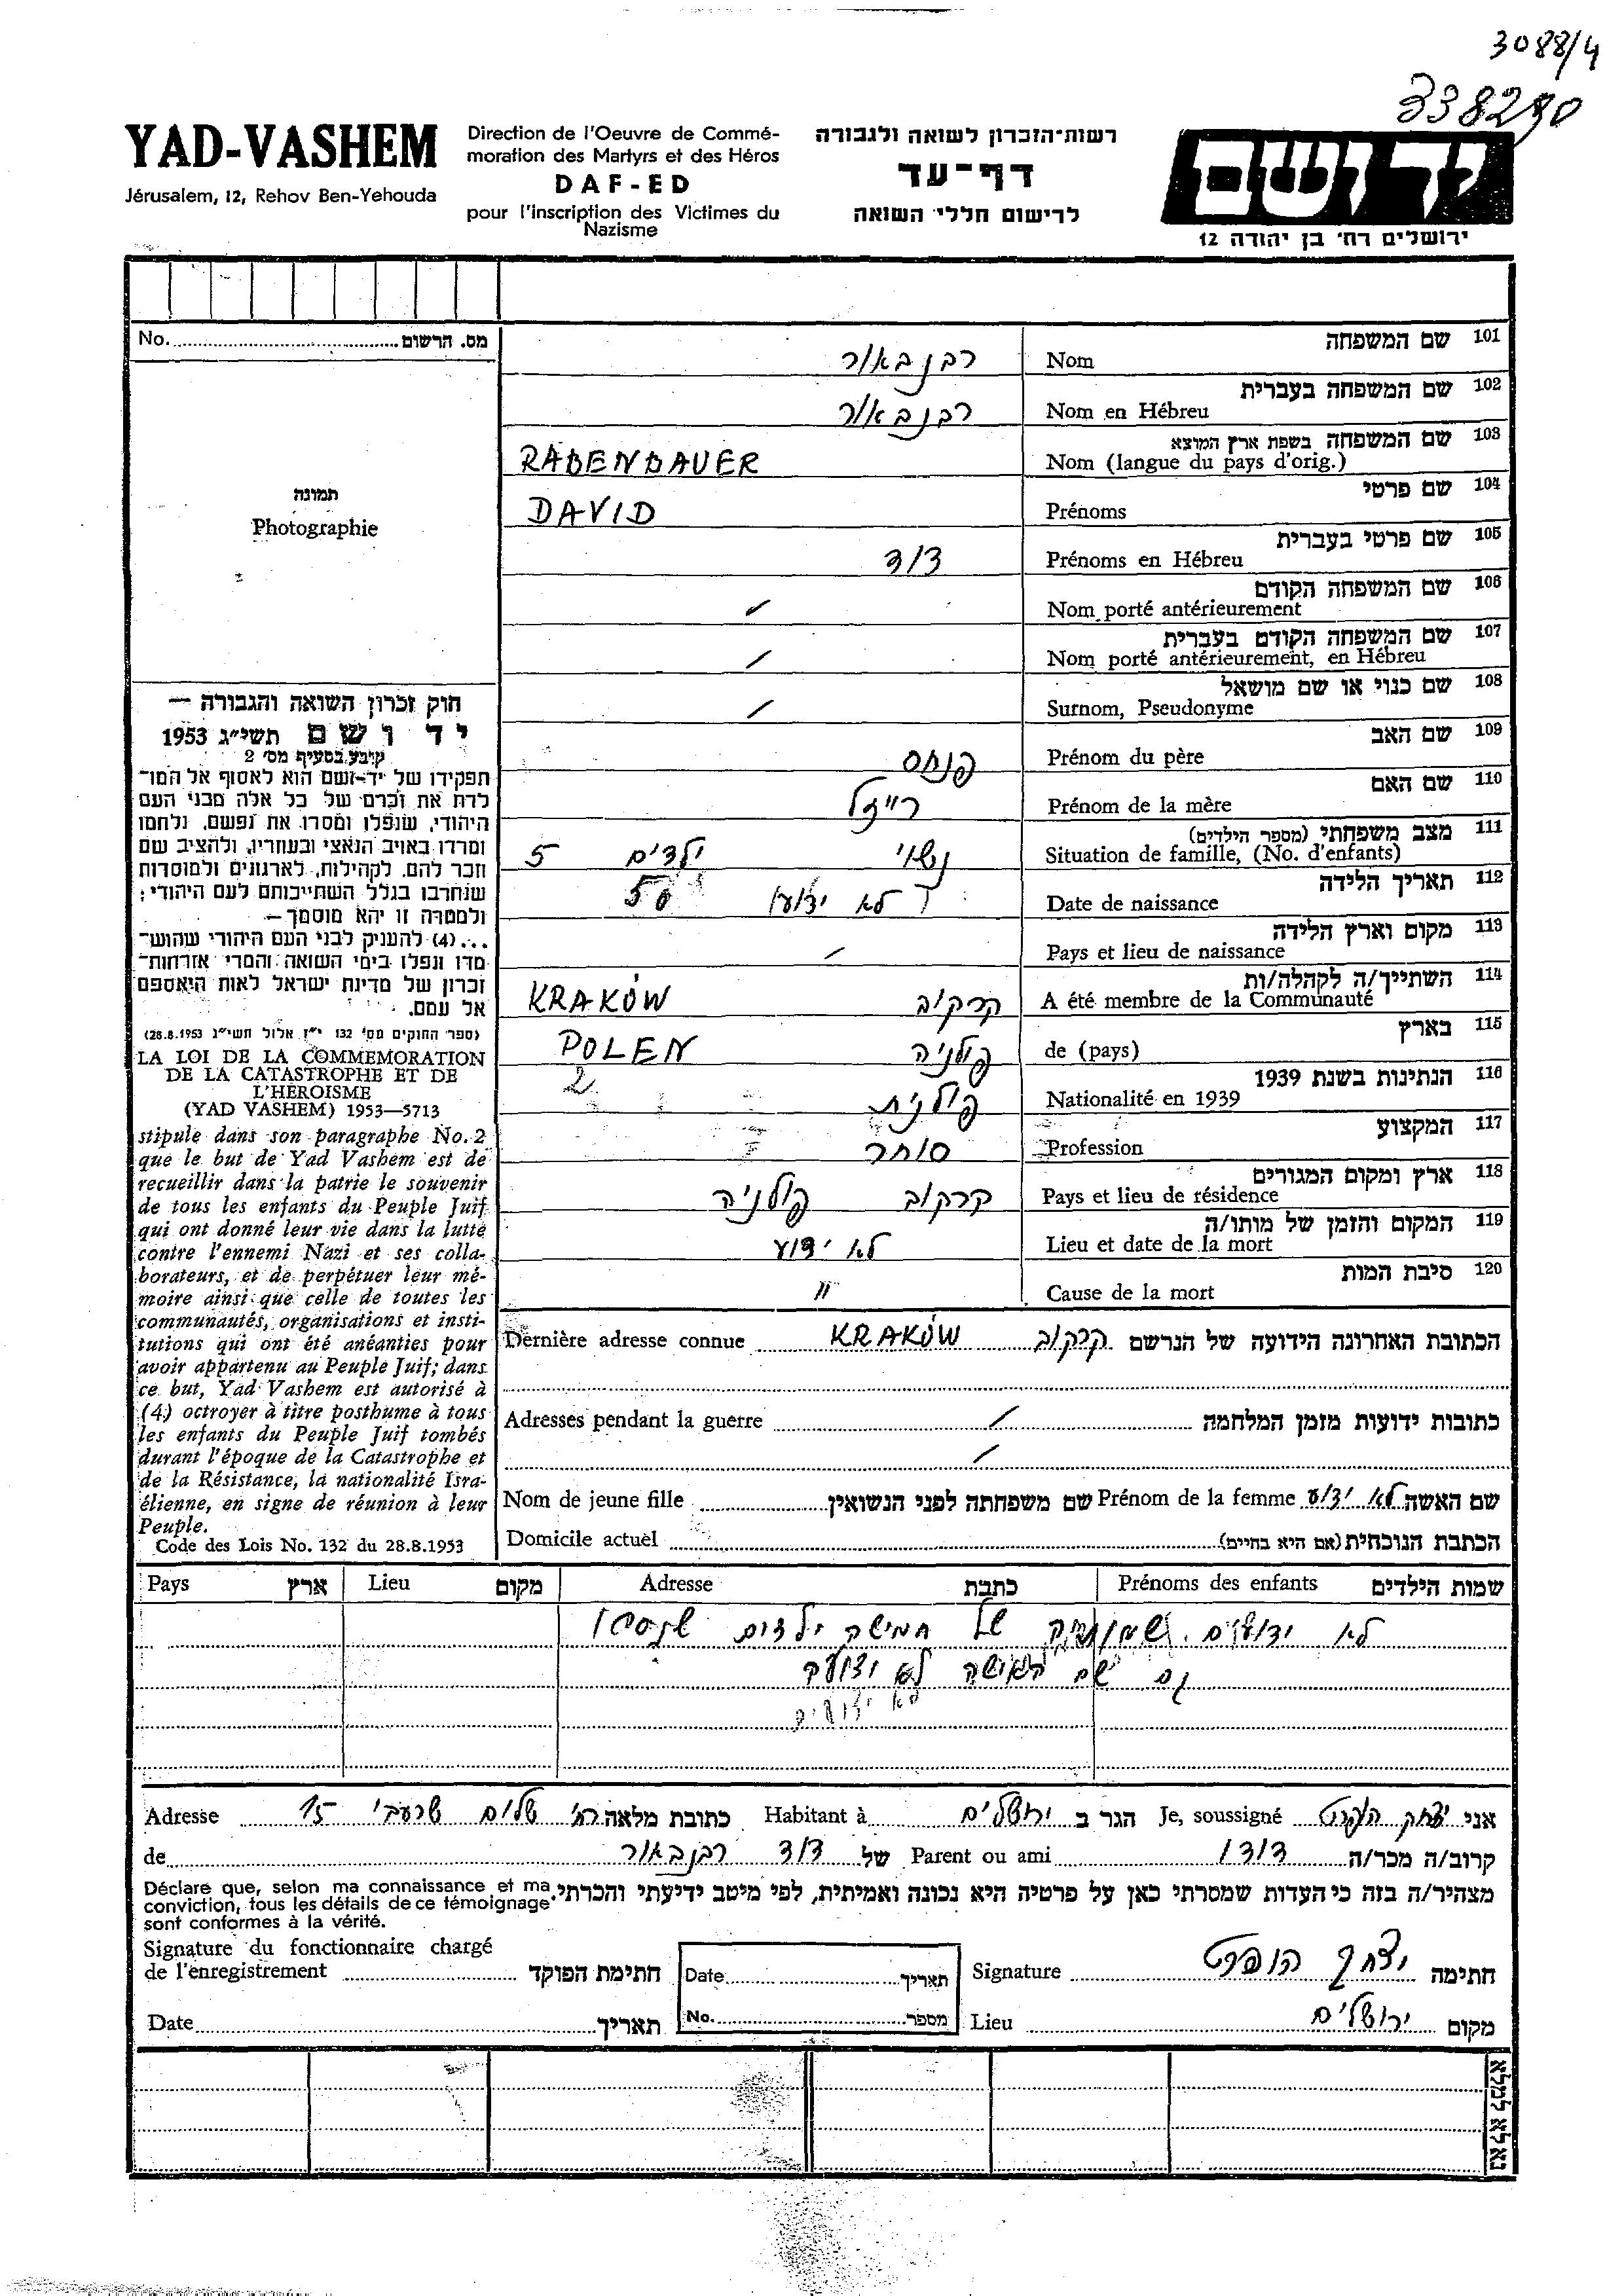 3088/4
338290
YAD-VASHEM
Jérusalem, 12, Rehov Ben-Yehouda
Direction de l'Oeuvre de Commé-
moration des Martyrs et des Héros
DAF-ED
pour l'inscription des Victimes du
Nazisme
רשות־הזכרון לשואה ולגבורה
דף־עד
לרישום חללי השואה
יד ושם
ירושלים רח' בן יהודה 12
No. מס. הרשום
תמונה
Photographie
101 שם המשפחה
Nom רבנבאור
102 שם המשפחה בעברית
Nom en Hébreu רבנבאור
103 שם המשפחה בשפת ארץ המוצא
Nom (langue du pays d'orig.) RABENBAUER
104 שם פרטי
Prénoms DAVID
105 שם פרטי בעברית
Prénoms en Hébreu דוד
106 שם המשפחה הקודם
Nom porté antérieurement /
107 שם המשפחה הקודם בעברית
Nom porté antérieurement, en Hébreu /
108 שם כנוי או שם מושאל
Surnom, Pseudonyme /
109 שם האב
Prénom du père פנחס
110 שם האם
Prénom de la mère רייזל
111 מצב משפחתי (מספר הילדים)
Situation de famille, (No. d'enfants) נשוי ילדים 5
112 תאריך הלידה
Date de naissance לא ידוע 50
113 מקום וארץ הלידה
Pays et lieu de naissance /
114 השתייך/ה לקהלה/ות
A été membre de la Communauté קרקוב KRAKÓW
115 בארץ
de (pays) פולניה POLEN
116 הנתינות בשנת 1939
Nationalité en 1939 פולנית 2
117 המקצוע
Profession סוחר
118 ארץ ומקום המגורים
Pays et lieu de résidence קרקוב פולניה
119 המקום והזמן של מותו/ה
Lieu et date de la mort לא ידוע
120 סיבת המות
Cause de la mort "
חוק זכרון השואה והגבורה —
יד ושם תשי״ג 1953
קובע בסעיף מס' 2
תפקידו של יד-ושם הוא לאסוף אל המו־
לדת את זכרם של כל אלה מבני העם
היהודי, שנפלו ומסרו את נפשם, נלחמו
ומרדו באויב הנאצי ובעוזריו, ולהציב שם
וזכר להם, לקהילות, לארגונים ולמוסדות
שנחרבו בגלל השתייכותם לעם היהודי;
ולמטרה זו יהא מוסמך —
...(4) להעניק לבני העם היהודי שהוש־
מדו ונפלו בימי השואה והמרי אזרחות־
זכרון של מדינת ישראל לאות היאספם
אל עמם.
(ספר החוקים מס' 132 י״ז אלול תשי״ג 28.8.1953)
LA LOI DE LA COMMEMORATION
DE LA CATASTROPHE ET DE
L'HÉROISME
(YAD VASHEM) 1953—5713
stipule dans son paragraphe No. 2
que le but de Yad Vashem est de
recueillir dans la patrie le souvenir
de tous les enfants du Peuple Juif
qui ont donné leur vie dans la lutte
contre l'ennemi Nazi et ses colla-
borateurs, et de perpétuer leur mé-
moire ainsi que celle de toutes les
communautés, organisations et insti-
tutions qui ont été anéanties pour
avoir appartenu au Peuple Juif; dans
ce but, Yad Vashem est autorisé à
(4) octroyer à titre posthume à tous
les enfants du Peuple Juif tombés
durant l'époque de la Catastrophe et
de la Résistance, la nationalité Isra-
élienne, en signe de réunion à leur
Peuple.
Code des Lois No. 132 du 28.8.1953
Dernière adresse connue KRAKÓW הכתובת האחרונה הידועה של הנרשם קרקוב
Adresses pendant la guerre / כתובות ידועות מזמן המלחמה
/
שם האשה לא ידוע Prénom de la femme שם משפחתה לפני הנשואין Nom de jeune fille
Domicile actuel הכתבת הנוכחית (אם היא בחיים)
שמות הילדים Prénoms des enfants כתבת Adresse מקום Lieu ארץ Pays
לא ידועים. של חמישה ילדים שנספו
גם שם האישה לא ידועה
לא ידועים
אני יצחק הופרט Je, soussigné הגר ב ירושלים Habitant à כתובת מלאה רח' שלום שרעבי 15 Adresse
קרוב/ה מכר/ה דודו Parent ou ami של דוד רבנבאור de
מצהיר/ה בזה כי העדות שמסרתי כאן על פרטיה היא נכונה ואמיתית, לפי מיטב ידיעתי והכרתי.
Déclare que, selon ma connaissance et ma
conviction, tous les détails de ce témoignage
sont conformes à la vérité.
Signature du fonctionnaire chargé
de l'enregistrement חתימת הפוקד
Date תאריך
Date תאריך
No. מספר
Signature יצחק הופרט חתימה
Lieu ירושלים מקום
נא לא למלא